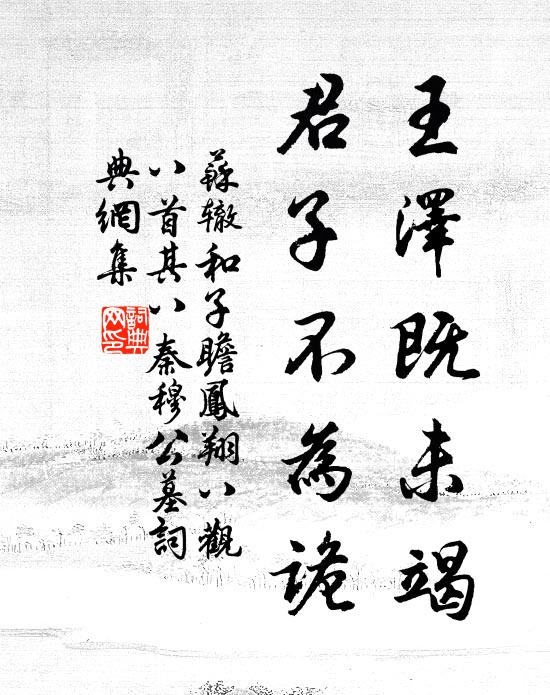 王澤既未竭
君子不為詭
蘇轍和子瞻鳳翔八觀
八首其八秦穆公墓詞
典網集
詞典
网印